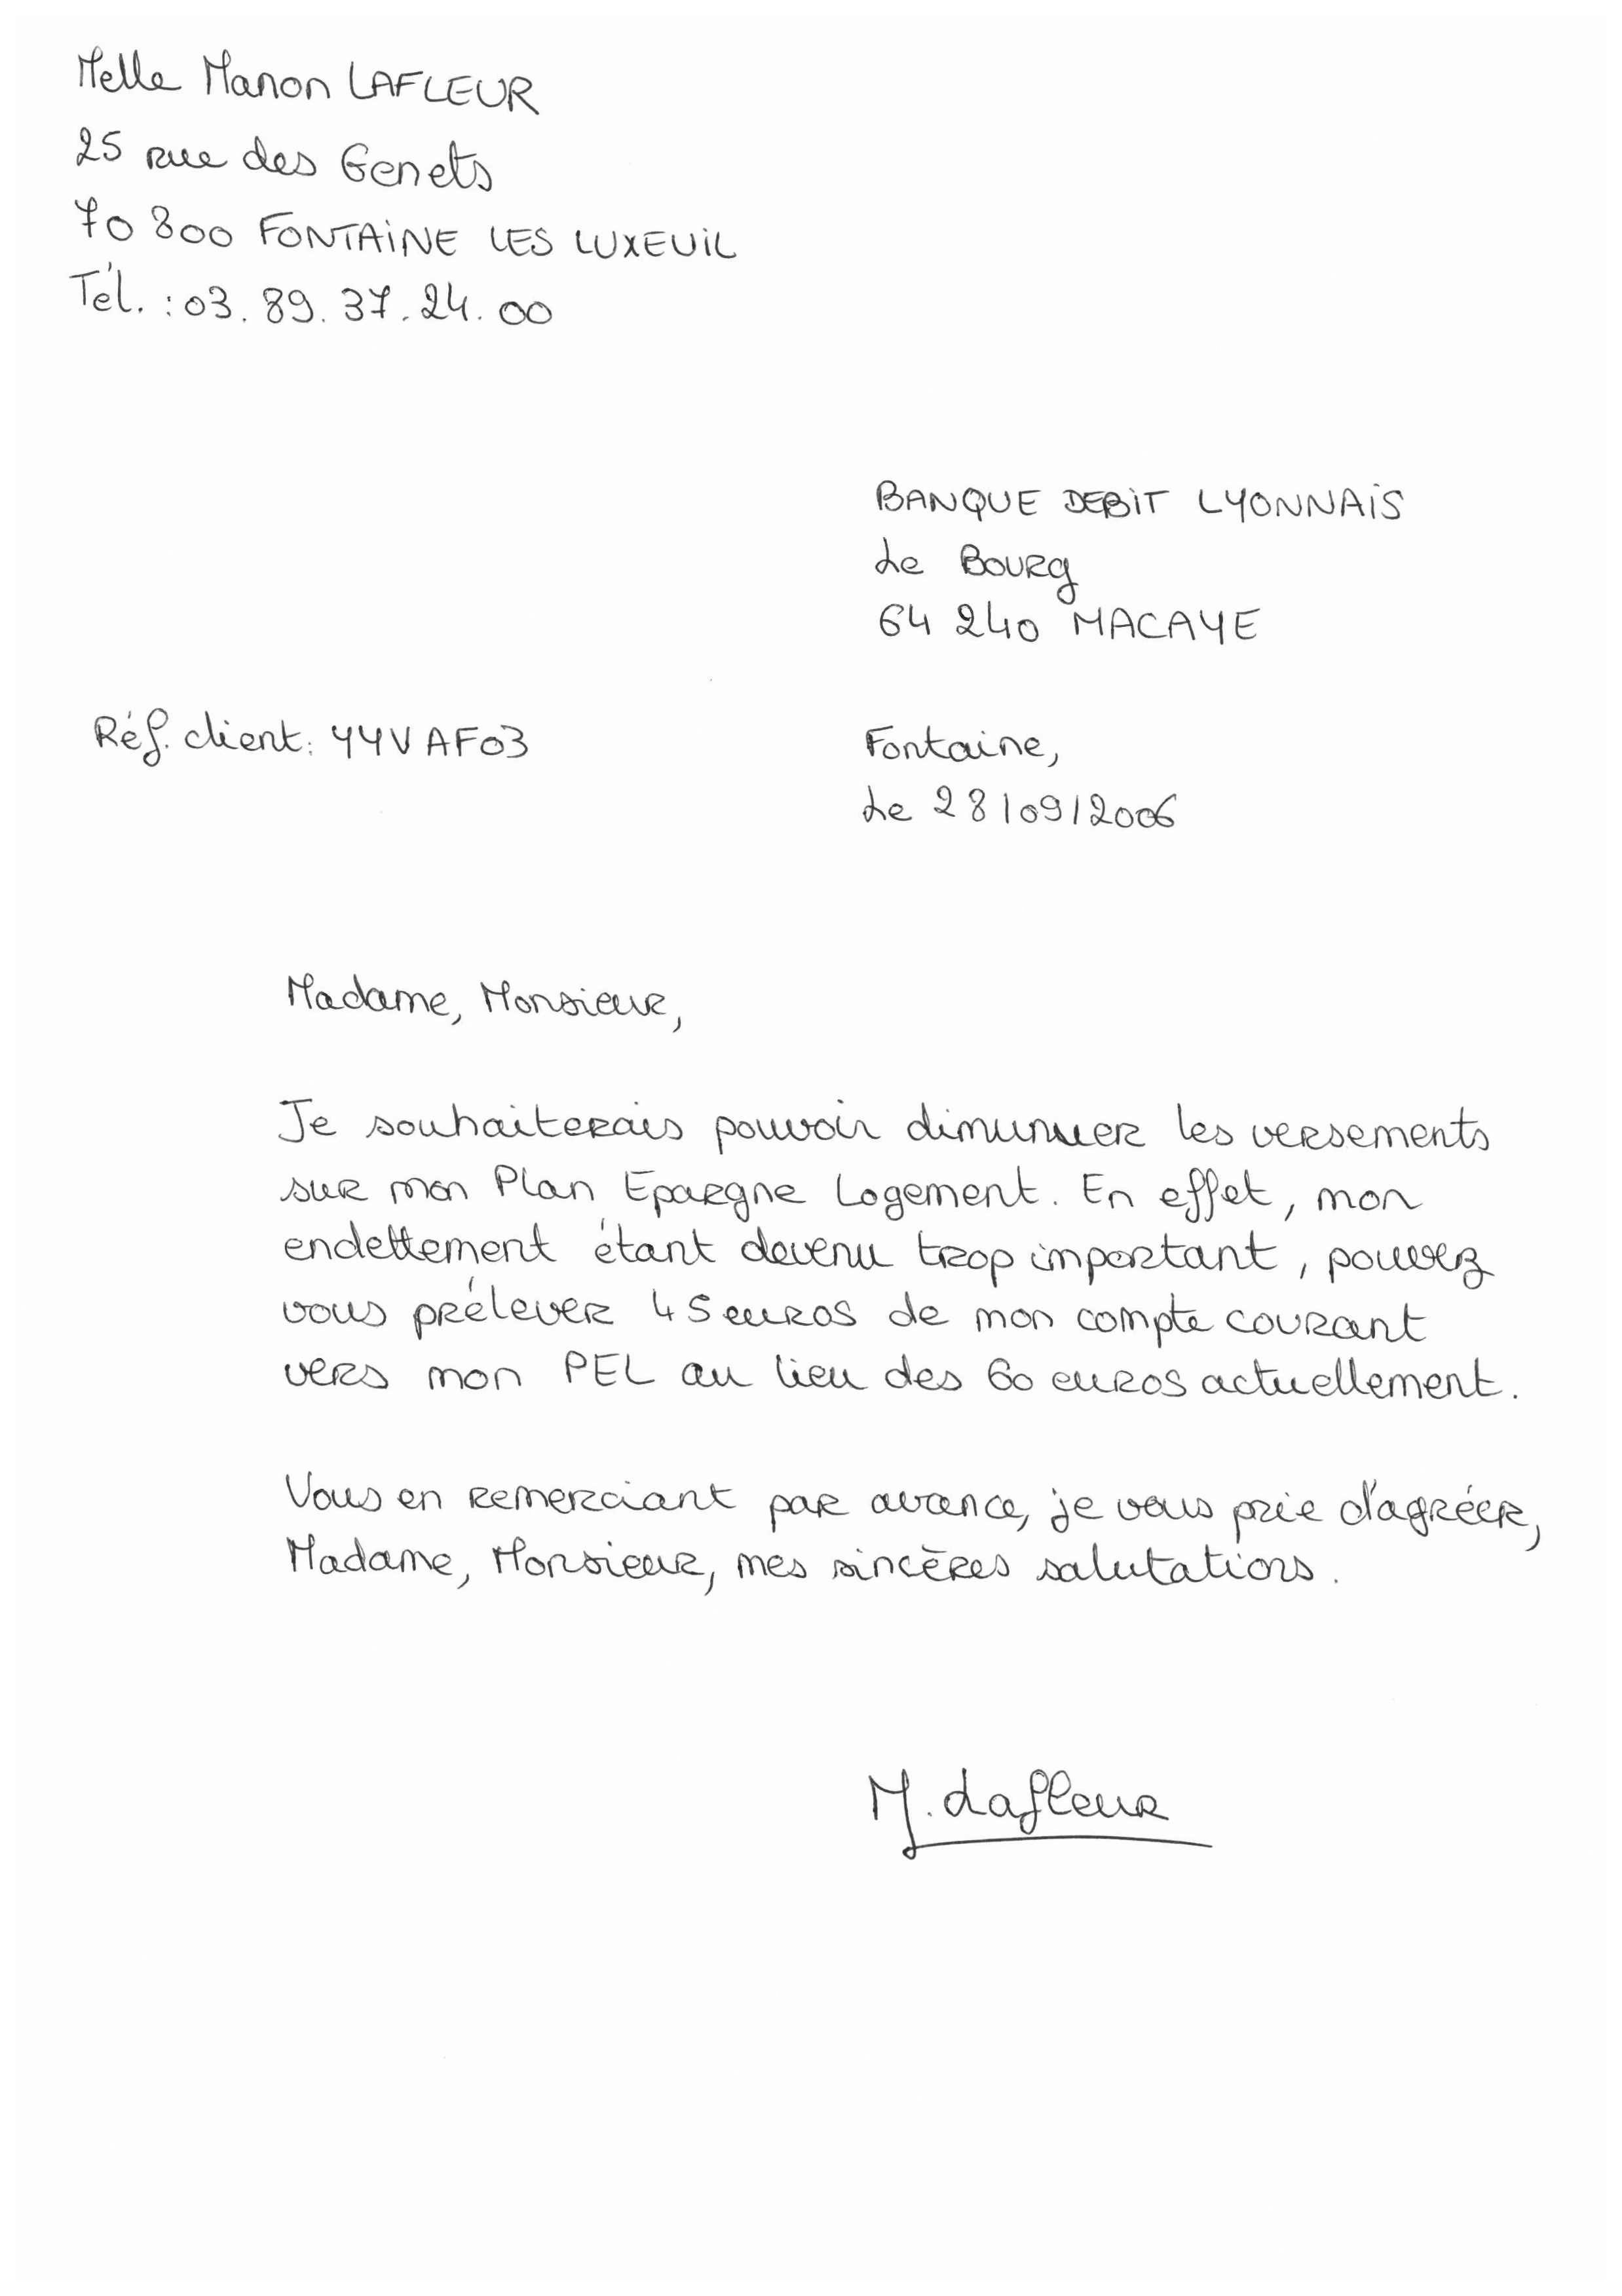 Melle Manon LAFLEUR
25 rue des Genets
70 800 FONTAINE LES LUXEUIL
Tél. : 03. 89. 37. 24. 00
BANQUE DEBIT LYONNAIS
Le Bourg
64 240 MACAYE
Réf. client: YYVAF03
Fontaine,
Le 28/09/2006
Madame, Monsieur,
Je souhaiterais pouvoir dimunuer les versements
sur mon Plan Epargne Logement. En effet, mon
endettement étant devenu trop important, pouvez
vous prélever 45 euros de mon compte courant
vers mon PEL au lieu des 60 euros actuellement.
Vous en remerciant par avance, je vous prie d'agréer,
Madame, Monsieur, mes sincères salutations.
M. Lafleur